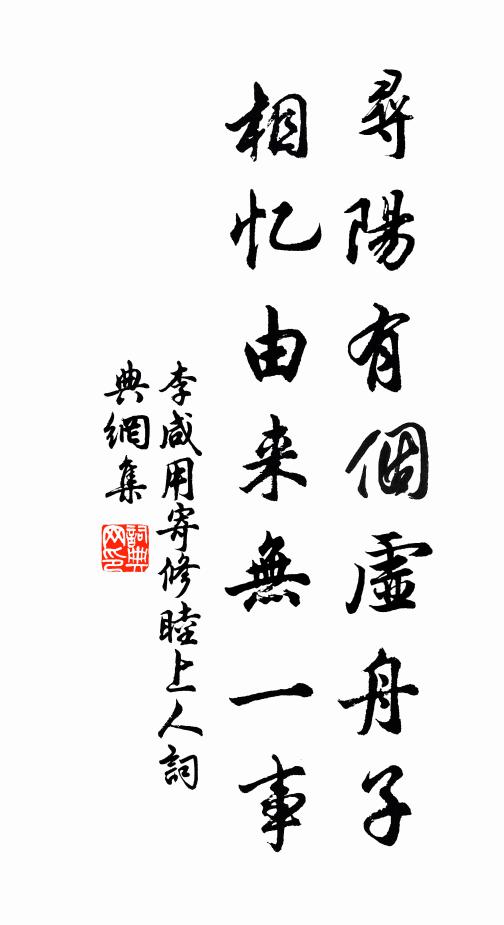 尋陽有個虛舟子
相忆由来無一事
李咸用寄修睦上人詞
典網集
詞典
网印